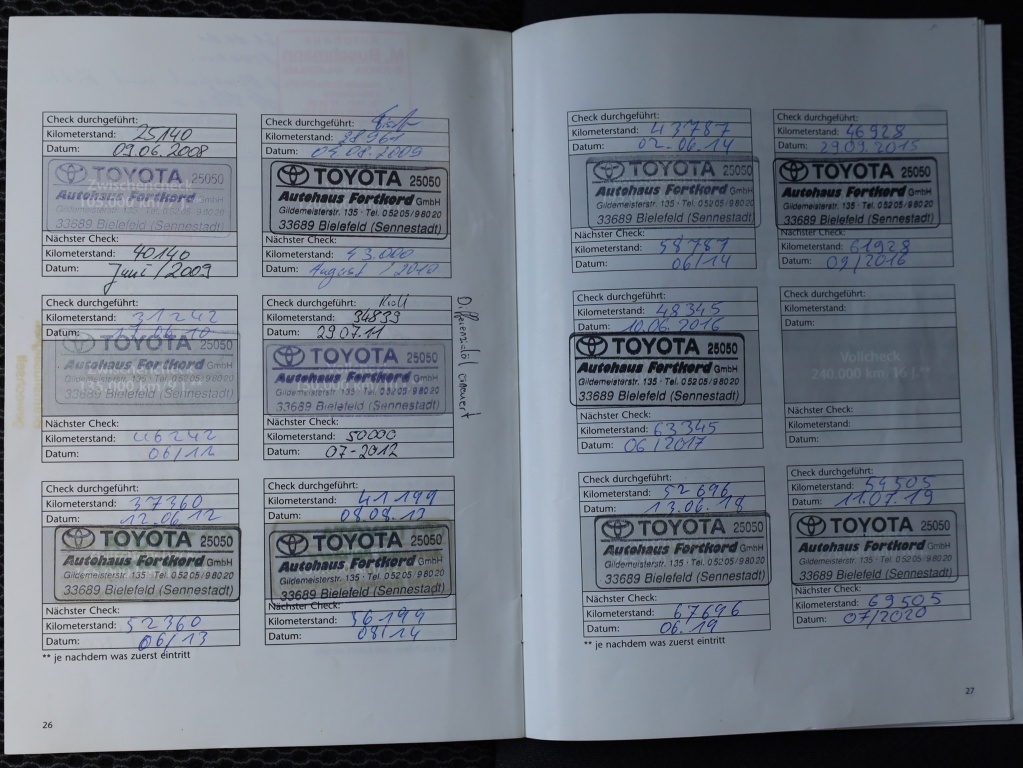 Check durchgeführt:
Kilometerstand: 25140
Datum: 09.06.2008
Zwischencheck
TOYOTA 25050
Autohaus Fortkord GmbH
Gildemeisterstr. 135 · Tel. 0 52 05 / 9 80 20
33689 Bielefeld (Sennestadt)
Nächster Check:
Kilometerstand: 40140
Datum: Juni / 2009
Check durchgeführt:
Kilometerstand: 28961
Datum: 04.08.2009
TOYOTA 25050
Autohaus Fortkord GmbH
Gildemeisterstr. 135 · Tel. 0 52 05 / 9 80 20
33689 Bielefeld (Sennestadt)
Nächster Check:
Kilometerstand: 43.000
Datum: August / 2010
Check durchgeführt:
Kilometerstand: 31242
Datum:
TOYOTA 25050
Autohaus Fortkord GmbH
Gildemeisterstr. 135 · Tel. 0 52 05 / 9 80 20
33689 Bielefeld (Sennestadt)
Nächster Check:
Kilometerstand: 46242
Datum: 06/11
Check durchgeführt:
Kilometerstand: 34839
Datum: 29.07.11
TOYOTA 25050
Autohaus Fortkord GmbH
Gildemeisterstr. 135 · Tel. 0 52 05 / 9 80 20
33689 Bielefeld (Sennestadt)
Nächster Check:
Kilometerstand: 50000
Datum: 07-2012
Differenzialöl erneuert
Check durchgeführt:
Kilometerstand: 37360
Datum: 12.06.12
TOYOTA 25050
Autohaus Fortkord GmbH
Gildemeisterstr. 135 · Tel. 0 52 05 / 9 80 20
33689 Bielefeld (Sennestadt)
Nächster Check:
Kilometerstand: 52360
Datum: 06/13
Check durchgeführt:
Kilometerstand: 41199
Datum: 08.08.13
TOYOTA 25050
Autohaus Fortkord GmbH
Gildemeisterstr. 135 · Tel. 0 52 05 / 9 80 20
33689 Bielefeld (Sennestadt)
Nächster Check:
Kilometerstand: 56199
Datum: 08/14
** je nachdem was zuerst eintritt
26
Check durchgeführt:
Kilometerstand: 43787
Datum: 02.06.14
TOYOTA 25050
Autohaus Fortkord GmbH
Gildemeisterstr. 135 · Tel. 0 52 05 / 9 80 20
33689 Bielefeld (Sennestadt)
Nächster Check:
Kilometerstand: 58787
Datum: 06/14
Check durchgeführt:
Kilometerstand: 46928
Datum: 29.09.2015
TOYOTA 25050
Autohaus Fortkord GmbH
Gildemeisterstr. 135 · Tel. 0 52 05 / 9 80 20
33689 Bielefeld (Sennestadt)
Nächster Check:
Kilometerstand: 61928
Datum: 09/2016
Check durchgeführt:
Kilometerstand: 48345
Datum: 10.06.2016
TOYOTA 25050
Autohaus Fortkord GmbH
Gildemeisterstr. 135 · Tel. 0 52 05 / 9 80 20
33689 Bielefeld (Sennestadt)
Nächster Check:
Kilometerstand: 63345
Datum: 06/2017
Check durchgeführt:
Kilometerstand:
Datum:
Vollcheck
240.000 km/16 J.**
Nächster Check:
Kilometerstand:
Datum:
Check durchgeführt:
Kilometerstand: 52696
Datum: 13.06.18
TOYOTA 25050
Autohaus Fortkord GmbH
Gildemeisterstr. 135 · Tel. 0 52 05 / 9 80 20
33689 Bielefeld (Sennestadt)
Nächster Check:
Kilometerstand: 67696
Datum: 06.19
Check durchgeführt:
Kilometerstand: 54505
Datum: 11.07.19
TOYOTA 25050
Autohaus Fortkord GmbH
Gildemeisterstr. 135 · Tel. 0 52 05 / 9 80 20
33689 Bielefeld (Sennestadt)
Nächster Check:
Kilometerstand: 69505
Datum: 07/2020
** je nachdem was zuerst eintritt
27